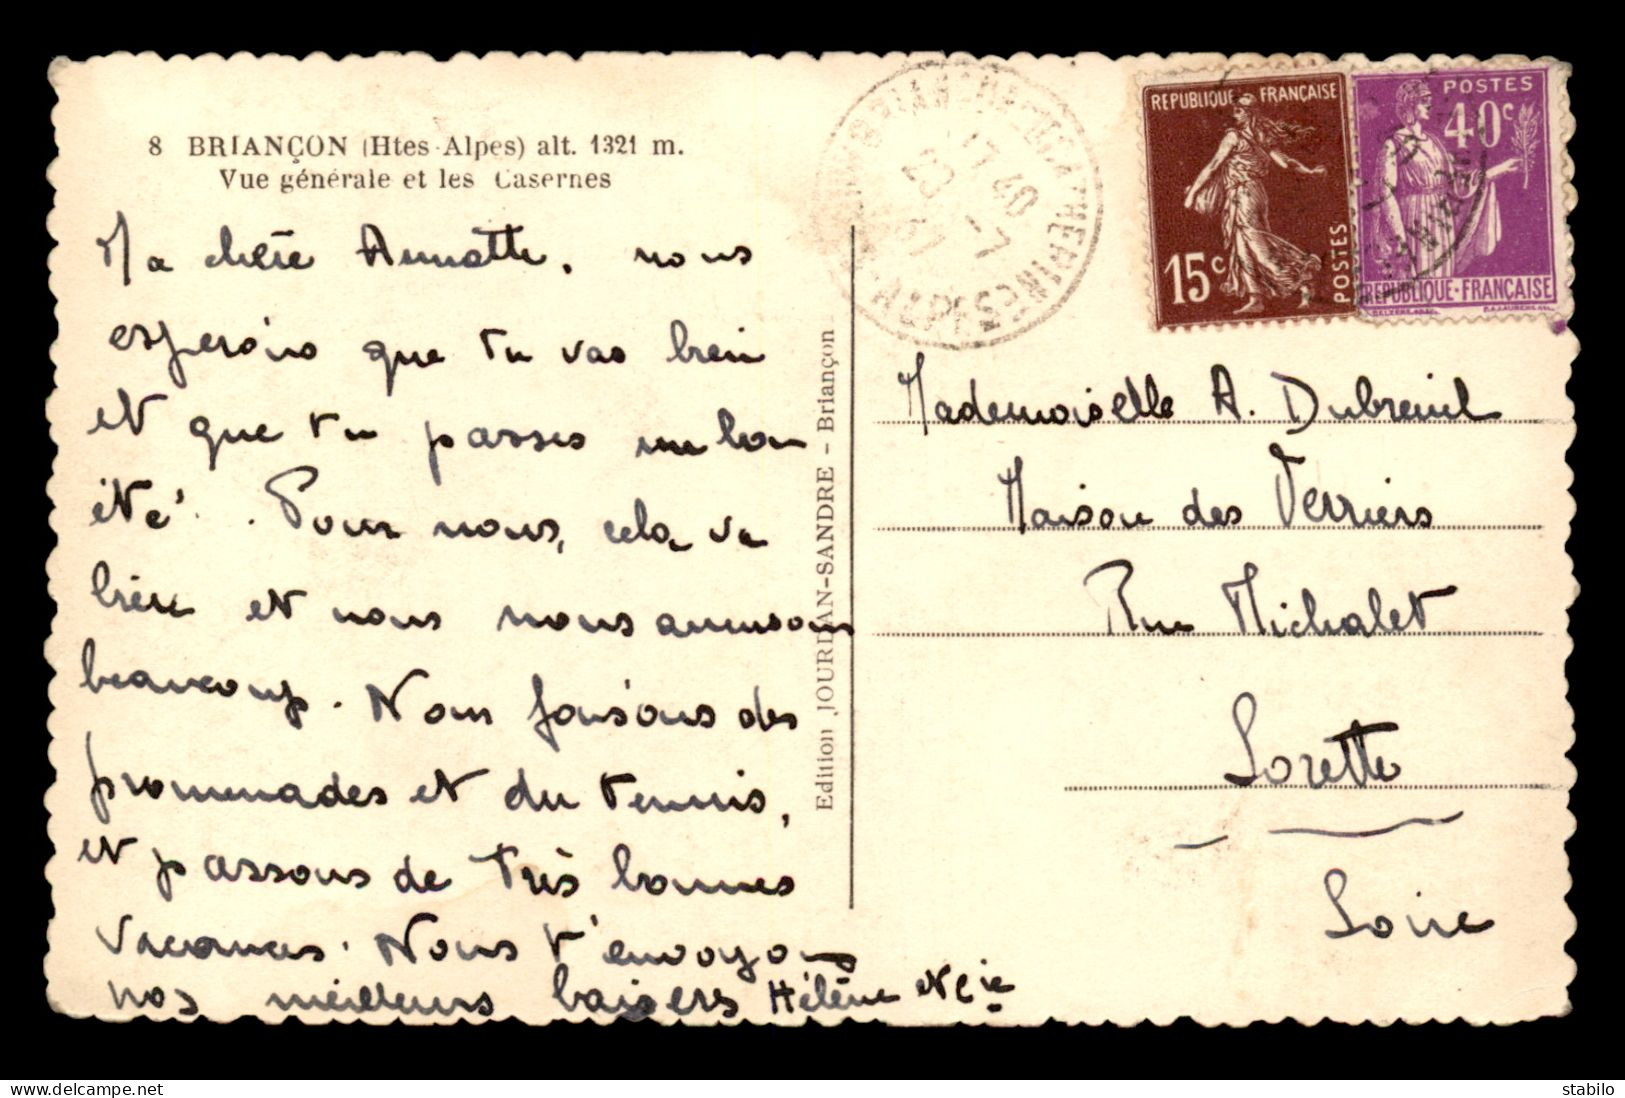 8 BRIANÇON (Htes-Alpes) alt. 1321 m.
Vue générale et les Casernes
Ma chère Annette, nous
espérons que tu vas bien
et que tu passes un bon
été. Pour nous, cela va
bien et nous nous amusons
beaucoup. Nous faisons des
promenades et du tennis,
et passons de très bonnes
vacances. Nous t'envoyons
nos meilleurs baisers Hélène et Cie
Edition JOURDAN-SANDRE - Briançon
17 40
23 -7
37
REPUBLIQUE FRANÇAISE
15c
POSTES
POSTES
40c
REPUBLIQUE·FRANÇAISE
Mademoiselle A. Dubreuil
Maison des Verriers
Rue Michalet
Lorette
Loire
www.delcampe.net
stabilo